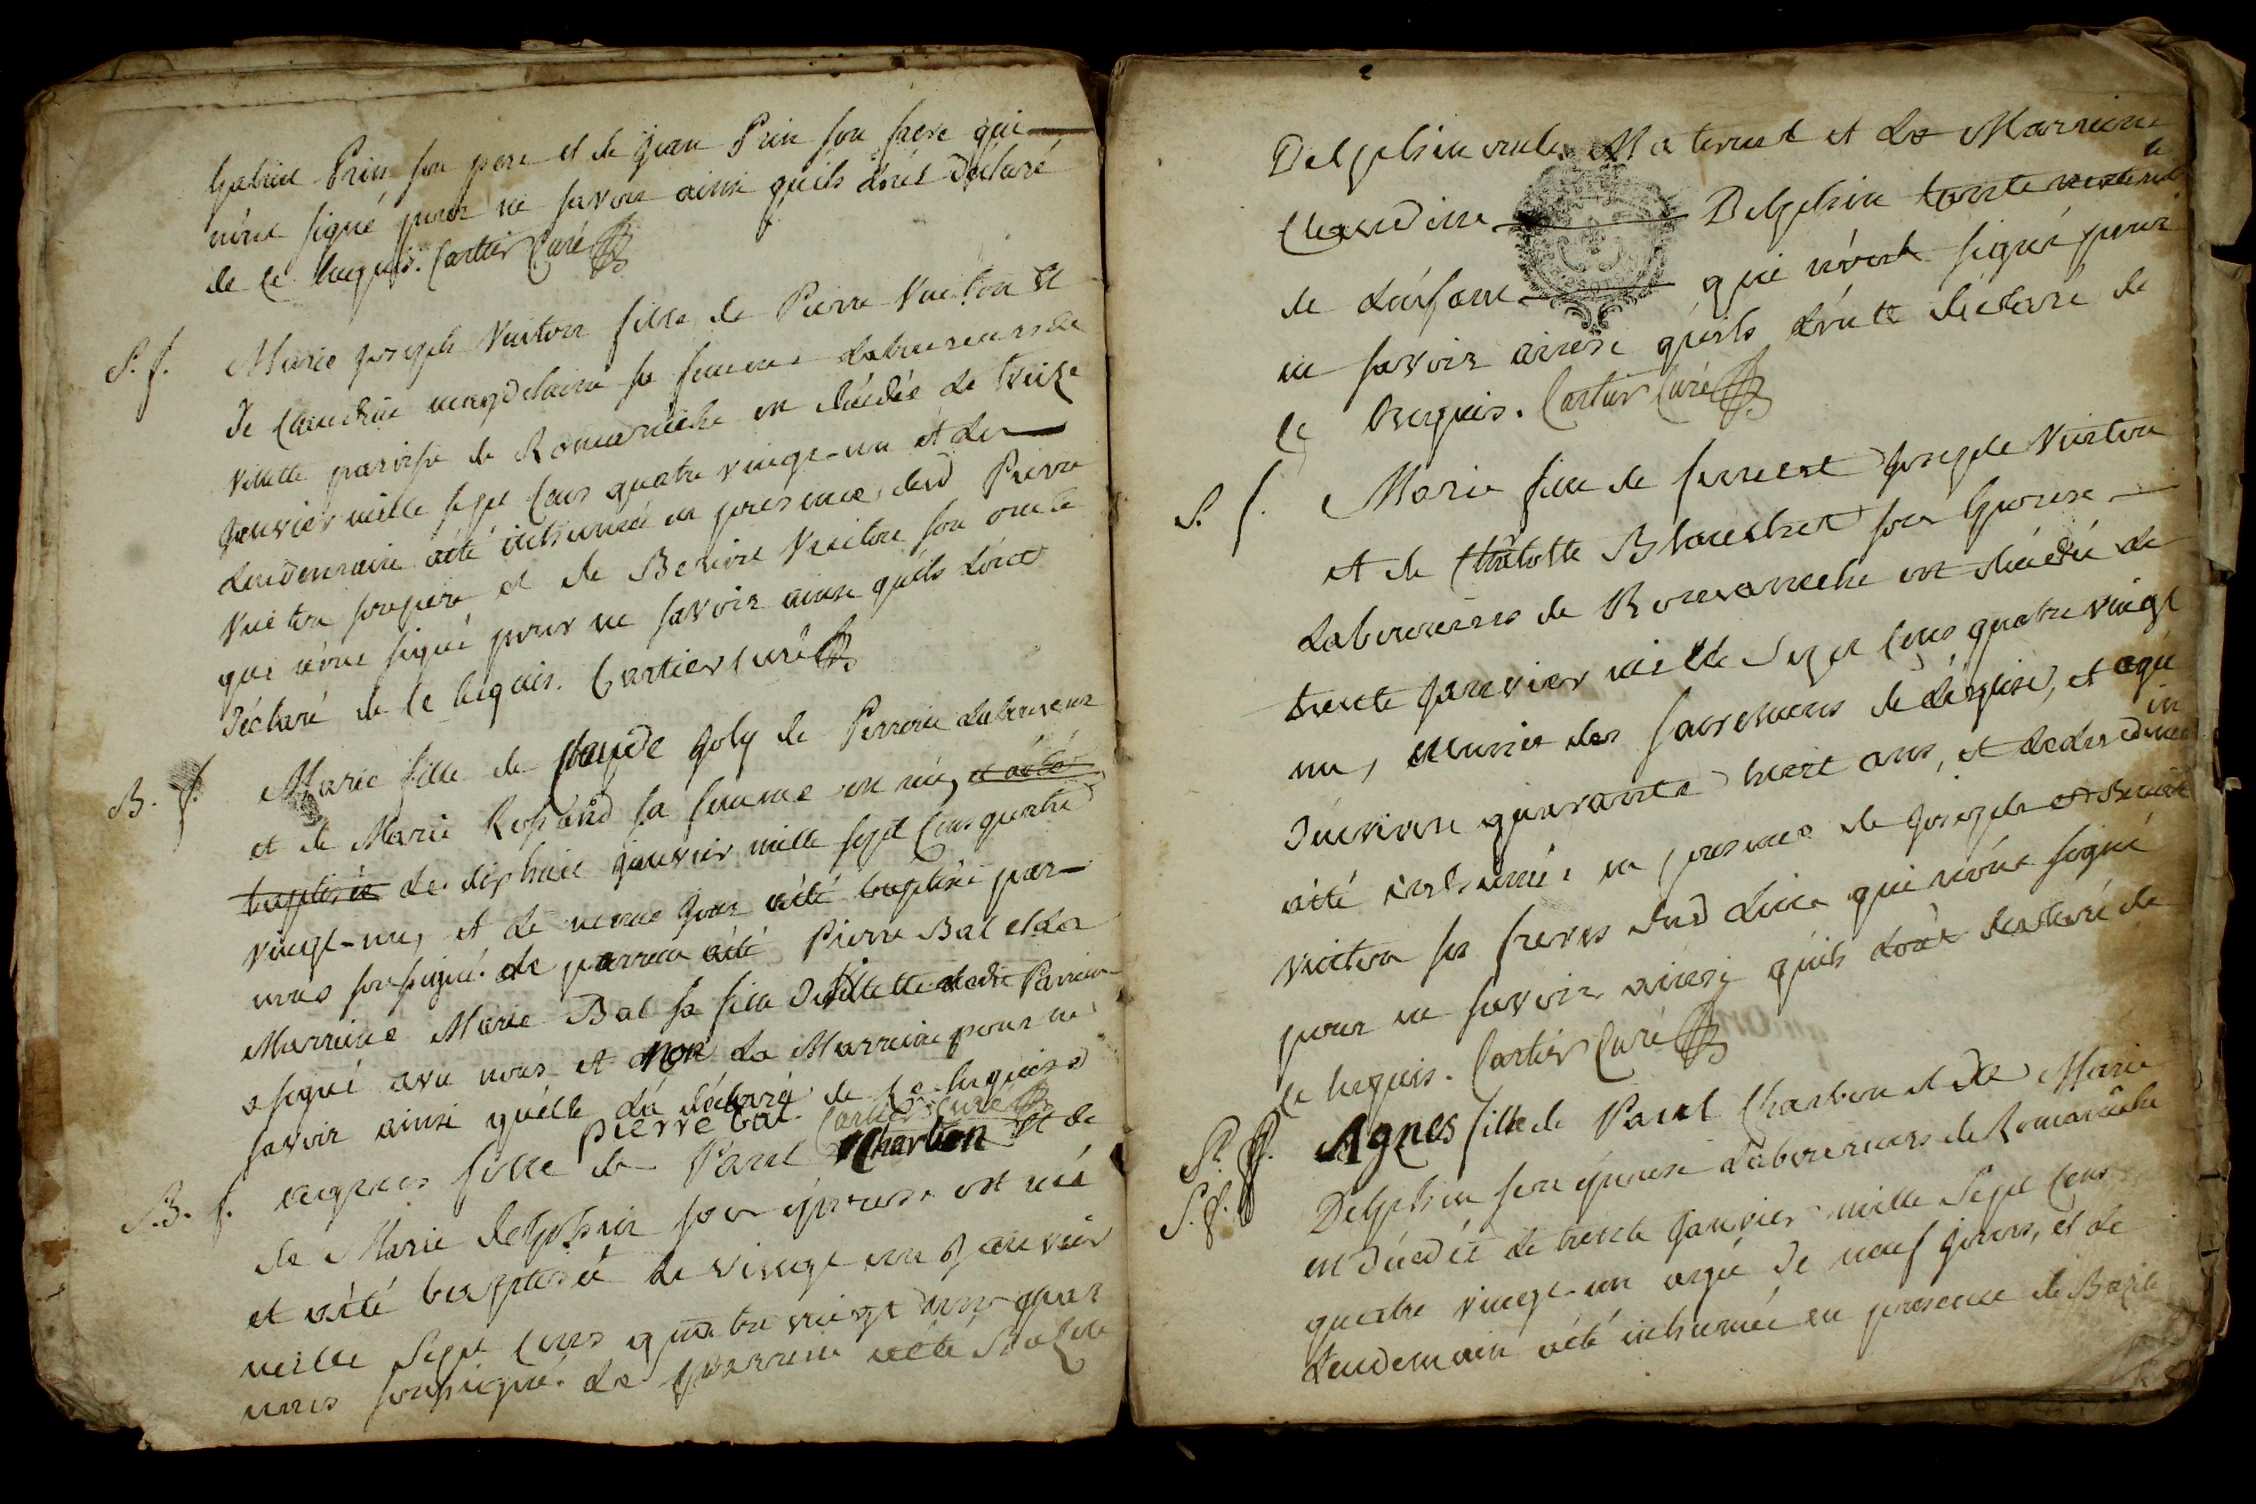 gabriel Prin son pere et de jean Prin son frere qui
n'ont signé pour ne savoir ainsi quils l'ont déclaré
de ce Requis. Cartier Curé
S. f. Marie joseph Vuiton fille de Pierre Vuiton et
de Claudine magdelaine sa femme laboureurs de
Villette paroisse de Romanèche est décédée le treize
janvier mille sept Cens quatre vingt-un et le
lendemain a été inhumée en presence dud Pierre
Vuiton son pere et de Benoit Vuiton son oncle
qui n'ont signé pour ne savoir ainsi quils l'ont
déclaré de ce Requis. Cartier curé
B. f. Marie fille de Claude joly de Perroin laboureur
et de Marie sa femme est née, et a été
baptisée le dixhuit janvier mille sept Cens quatre
vingt-un, et le meme jour a été baptisée par
nous soussigné. le parrein a été Pierre Bal et la
Marreine Marie Bal sa fille de Villette ledit Parrein
a signé avec nous et non la Marreine pour ne
savoir ainsi quelle l'a déclaré de ce Requise
pierre bal. Cartier Curé
B. f. agnes fille de Paul Charbon et de
de Marie delphin son épouse est née
et a été baptisée le vingt un janvier
mille Sept Cens quatre vingt un par
nous soussigné. le parrein a été Bazile
Delphin oncle Maternel et la Marreine
Claudine Delphin tante maternelle
de l'enfant qui n'ont signé pour
ne savoir ainsi quils l'ont déclaré de
ce Requis. Cartier Curé
S. f. Marie fille de joseph Vuiton
et de Charlotte son épouse
laboureurs de Romanèche est décédée le
trente janvier mille Sept Cens quatre vingt
un, munie des sacremens de l'église, et agée
d'environ quarante huit ans, et le lendemain
a été inhumée en presence de joseph et benoit
Vuiton ses freres dud lieu qui n'ont signé
pour ne savoir ainsi quils l'ont declaré de
ce Requis. Cartier Curé
S. f. Agnes fille de Paul Charbon et de Marie
S. f. Delphin son épouse laboureurs de Romanèche
est décédée le trente janvier mille Sept Cens
quatre vingt-un agée de neuf jours, et le
lendemain a été inhumée en presence de Bazile